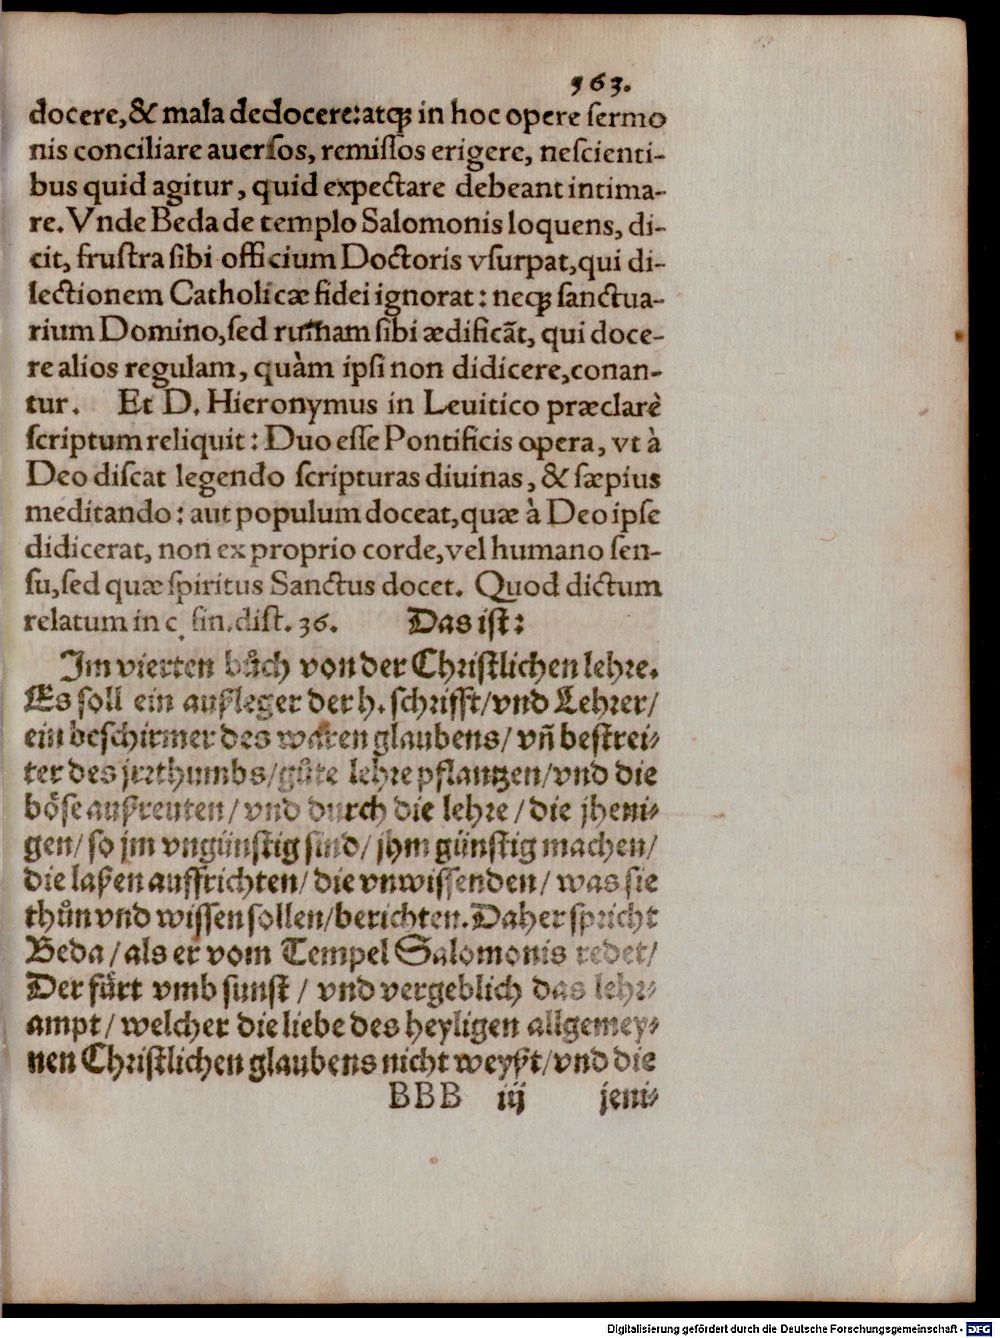 363.
docere, & mala dedocere: atq; in hoc opere ſermo
nis conciliare auerſos, remiſſos erigere, neſcienti-
bus quid agitur, quid expectare debeant intima-
re. Vnde Beda de templo Salomonis loquens, di-
cit, fruſtra ſibi officium Doctoris vſurpat, qui di-
lectionem Catholicæ fidei ignorat: neq; ſanctua-
rium Domino, ſed ruinam ſibi ædificãt, qui doce-
re alios regulam, quàm ipſi non didicere, conan-
tur. Et D. Hieronymus in Leuitico præclarè
ſcriptum reliquit: Duo eſſe Pontificis opera, vt à
Deo diſcat legendo ſcripturas diuinas, & ſæpius
meditando: aut populum doceat, quæ à Deo ipſe
didicerat, non ex proprio corde, vel humano ſen-
ſu, ſed quæ ſpiritus Sanctus docet. Quod dictum
relatum in c. ſin. diſt. 36. Das iſt:
Im vierten bůch von der Chriſtlichen lehre.
Es ſoll ein außleger der h. ſchrifft/ vnd Lehrer/
ein beſchirmer des waren glaubens/ vñ beſtrei-
ter des jrrthumbs/ gůte lehre pflantzen/ vnd die
böſe außreuten/ vnd durch die lehre/ die jheni-
gen/ ſo jm vngünſtig ſind/ jhm günſtig machen/
die laßen auffrichten/ die vnwiſſenden/ was ſie
thůn vnd wiſſen ſollen/ berichten. Daher ſpricht
Beda/ als er vom Tempel Salomonis redet/
Der fürt vmb ſunſt/ vnd vergeblich das lehr-
ampt/ welcher die liebe des heyligen allgemey-
nen Chriſtlichen glaubens nicht weyßt/ vnd die
BBB iij jeni-
Digitalisierung gefördert durch die Deutsche Forschungsgemeinschaft - DFG